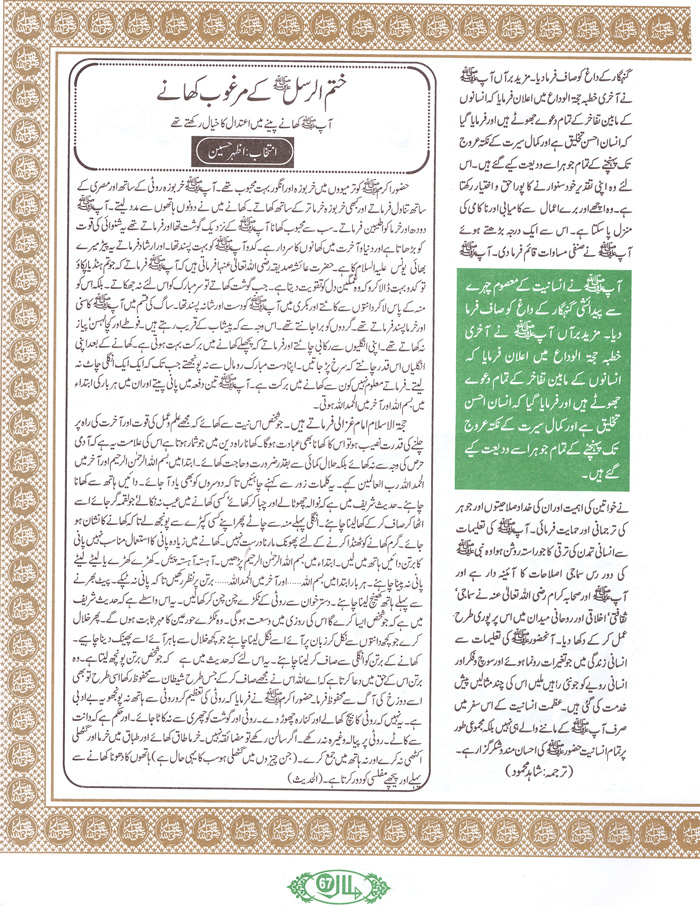 گنہگار کے داغ کو صاف فرما دیا۔ مزید برآں آپ ﷺ
نے آخری خطبہ حجۃ الوداع میں اعلان فرمایا کہ انسانوں
کے مابین تفاخر کے تمام دعوے جھوٹے ہیں اور فرمایا گیا
کہ انسان احسن تخلیق ہے اور کمال سیرت کے نکتہ عروج
تک پہنچنے کے تمام جوہر اسے ودیعت کیے گئے ہیں۔ اس
لئے وہ اپنی تقدیر خود سنوارنے کا پورا حق و اختیار رکھتا
ہے۔ وہ اچھے اور برے اعمال سے کامیابی اور ناکامی کی
منزل پا سکتا ہے۔ اس سے ایک درجہ بڑھتے ہوئے
آپ ﷺ نے صنفی مساوات قائم فرما دی۔ آپ ﷺ
آپ ﷺ نے انسانیت کے معصوم چہرے
سے پیدائشی گنہگار کے داغ کو صاف فرما
دیا۔ مزید برآں آپ ﷺ نے آخری
خطبہ حجۃ الوداع میں اعلان فرمایا کہ
انسانوں کے مابین تفاخر کے تمام دعوے
جھوٹے ہیں اور فرمایا گیا کہ انسان احسن
تخلیق ہے اور کمال سیرت کے نکتہ عروج
تک پہنچنے کے تمام جوہر اسے ودیعت کیے
گئے ہیں۔
نے خواتین کی اہمیت اور ان کی خداد صلاحیتوں اور جوہر
کی ترجمانی اور حمایت فرمائی۔ آپ ﷺ کی تعلیمات
سے انسانی تمدن کی ترقی کا جو راستہ روشن ہوا وہ نبی ﷺ
کی دور رس سماجی اصلاحات کا آئینہ دار ہے اور
آپ ﷺ اور صحابہ کرام رضی اللہ تعالیٰ عنہ نے سماجی'
ثقافتی' اخلاقی اور روحانی میدان میں اس پر پوری طرح
عمل کر کے دکھا دیا۔ آنحضور ﷺ کی تعلیمات سے
انسانی زندگی میں جو تغیرات رونما ہوئے اور سوچ و فکر اور
انسانی رویے کو جو نئی راہیں ملیں اس کی چند مثالیں پیش
خدمت کی گئی ہیں۔ عظمت انسانیت کے اس سفر میں
صرف آپ ﷺ کے ماننے والے ہی نہیں بلکہ مجموعی طور
پر تمام انسانیت حضور ﷺ کی احسان مند و شکر گزار ہے۔
(ترجمہ: شاہد محمود)
ختم الرسل ﷺ کے مرغوب کھانے
آپ ﷺ کھانے پینے میں اعتدال کا خیال رکھتے تھے
انتخاب: اظہر حسین
حضور اکرم ﷺ کو تر میووں میں خربوزہ اور انگور بہت محبوب تھے۔ آپ ﷺ خربوزہ روٹی کے ساتھ اور مصری کے
ساتھ تناول فرماتے اور کبھی خربوزہ خرما تر کے ساتھ کھاتے۔ کھانے میں نے دونوں ہاتھوں سے مدد لیتے۔ آپ ﷺ
دودھ اور خرما کو اطیبین فرماتے۔ سب سے محبوب کھانا آپ ﷺ کے نزدیک گوشت تھا اور فرماتے تھے یہ شنوائی کی قوت
کو بڑھاتا ہے اور دنیا و آخرت میں کھانوں کا سردار ہے۔ کدو آپ ﷺ کو بہت پسند تھا۔ اور ارشاد فرماتے یہ پیڑ میرے
بھائی یونس علیہ السلام کا ہے۔ حضرت عائشہ صدیقہ رضی اللہ تعالیٰ عنہا فرماتی ہیں کہ آپ ﷺ فرماتے کہ جو تم ہنڈیا پکاؤ
تو کدو بہت ڈالا کرو کہ وہ غمگین دل کو تقویت دیتا ہے۔ جب گوشت کھاتے تو سر مبارک کو اس لئے نہ جھکاتے۔ بلکہ اس کو
منہ کے پاس لا کر دانتوں سے کاٹتے اور بکری میں آپ ﷺ کو دست اور شانہ پسند تھا۔ ساگ کی قسم میں آپ ﷺ کاسنی
اور خرفہ پسند فرماتے تھے۔ گردوں کو برا جانتے تھے۔ اس وجہ سے کہ پیشاب کے قریب رہتے ہیں۔ فوطے اور کچا لہسن پیاز
نہ کھاتے تھے۔ اپنی انگلیوں سے رکابی چاٹتے اور فرماتے کہ پچھلے کھانے میں برکت بہت ہوتی ہے۔ کھانے کے بعد اپنی
انگلیاں اس قدر چاٹتے کہ سرخ پڑ جاتیں۔ اپنا دست مبارک رومال سے نہ پونچھتے جب تک کہ ایک ایک انگلی چاٹ نہ
لیتے۔ فرماتے معلوم نہیں کون سے کھانے میں برکت ہے۔ آپ ﷺ تین دفعہ میں پانی پیتے اور ان میں ہر بار کی ابتداء
میں بسم اللہ اور آخر میں الحمد للہ ہوتی۔
حجۃ الاسلام امام غزالی فرماتے ہیں۔ جو شخص اس نیت سے کھائے کہ مجھے علم و عمل کی قوت اور آخرت کی راہ پر
چلنے کی قدرت نصیب ہو تو اس کا کھانا بھی عبادت ہوگا۔ کھانا راہ دین میں جو شمار ہوتا ہے اس کی علامت یہ ہے کہ آدمی
حرص کی وجہ سے نہ کھائے بلکہ حلال کمائی سے بقدر ضرورت و حاجت کھائے۔ ابتدا میں بسم اللہ الرحمٰن الرحیم اور آخر میں
الحمد للہ رب العالمین کہے۔ یہ کلمات زور سے کہنے چاہئیں تا کہ دوسروں کو بھی یاد آ جائے۔
حدیث شریف میں ہے کہ نوالہ چھوٹا لے اور چبا کر کھائے' کسی کھانے میں عیب نہ نکالے' جو لقمہ گر جائے اسے
اٹھا کر صاف کر کے کھا لینا چاہئے۔ انگلی پہلے منہ سے چاٹے پھر اپنے کسی کپڑے سے پونچھ لے تا کہ کھانے کا نشان ہو
جائے۔ گرم کھانے کو ٹھنڈا کرنے کے لئے پھونک مارنا درست نہیں۔ کھانے میں زیادہ پانی کا استعمال مناسب نہیں پانی
کا برتن دائیں ہاتھ میں لیں۔ ابتداء میں بسم اللہ الرحمٰن الرحیم پڑھیں۔ آہستہ آہستہ پئیں۔ کھڑے کھڑے یا لیٹے لیٹے
پانی نہ پینا چاہئے۔ ہر بار ابتدا میں بسم اللہ...... اور آخر میں الحمد للہ...... برتن پر نظر رکھیں تا کہ پانی نہ ٹپکے۔ پیٹ بھرنے
سے پہلے ہاتھ کھینچ لینا چاہئے۔ دسترخوان سے روٹی کے ٹکڑے چن چن کر کھا لیں۔ یہ اس واسطے ہے کہ حدیث شریف
میں ہے کہ جو شخص ایسا کرے گا اس کی روزی میں وسعت ہو گی۔ وہ ٹکڑے حور عین کا مہر ثابت ہوں گے۔ پھر خلال
کرے جو کچھ دانتوں سے نکل کر زبان پر آئے اسے نگل لینا چاہئے جو کچھ خلال سے باہر آئے اسے پھینک دینا چاہیے۔
کھانے کے برتن کو انگلی سے صاف کر لینا چاہئے۔ یہ اس لئے کہ حدیث میں ہے کہ جو شخص برتن پونچھ لیتا ہے۔ وہ
برتن اس کے حق میں دعا کرتا ہے کہ اے اللہ اس نے مجھے صاف کر کے جس طرح شیطان سے محفوظ رکھا اسی طرح تو بھی
اسے دوزخ کی آگ سے محفوظ فرما۔ حضور اکرم ﷺ نے فرمایا کہ روٹی کی تعظیم کرو روٹی سے ہاتھ نہ پونچھو یہ بے ادبی
ہے۔ یہ نہیں کہ روٹی کا بیچ کھا لے اور کنارہ چھوڑ دے۔ روٹی اور گوشت کو چھری سے نہ کاٹا جائے۔ اور حکم ہے کہ دانت
سے کاٹے۔ روٹی پر پیالہ وغیرہ نہ رکھے۔ اگر سالن رکھے تو مضائقہ نہیں۔ خرما طاق کھائے اور طباق میں خرما اور گٹھلی
اکٹھی نہ کرے اور نہ ہاتھ میں جمع کرے۔ (جن چیزوں میں گٹھلی ہو سب کا یہی حال ہے) ہاتھوں کا دھونا کھانے سے
پہلے اور پیچھے مفلسی کو دور کرتا ہے۔ (الحدیث)
ہلال 67